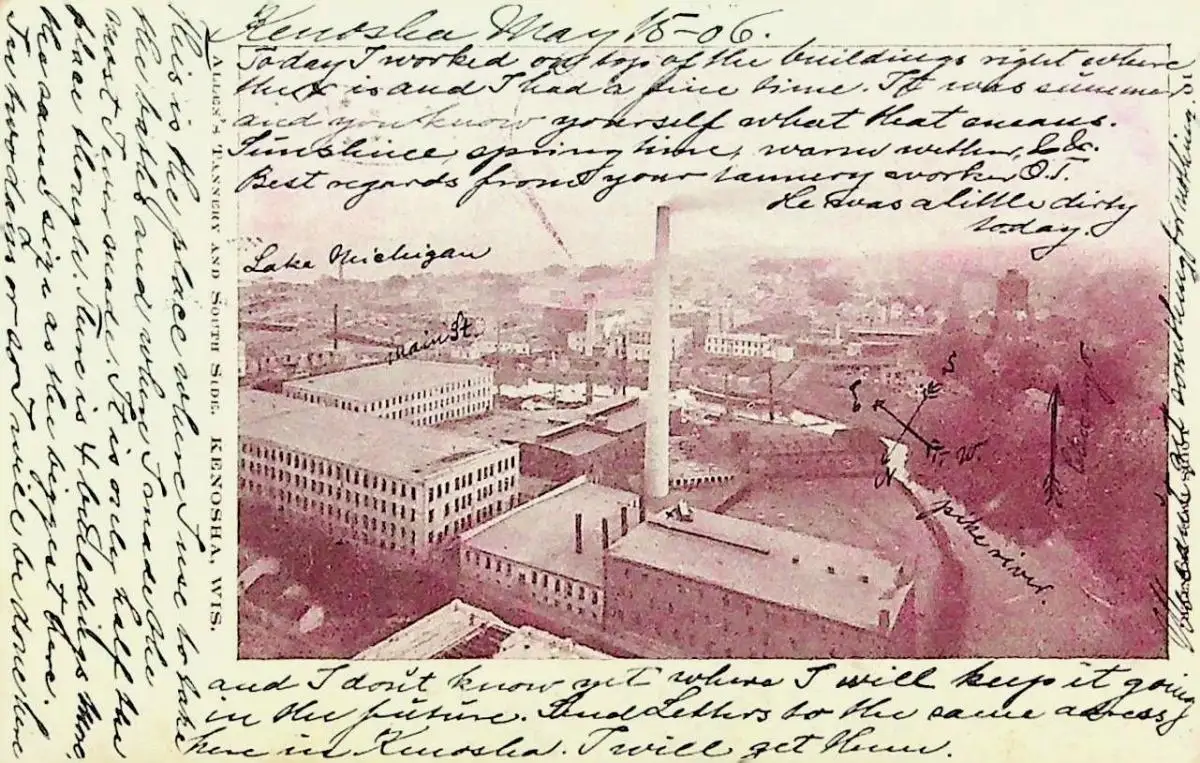 Kenosha May 15-06.
Today I worked on top of the buildings right where
the x is and I had a fine time. It was summer
and you know yourself what that means.
Sunshine, springtime, warm wether, &c.
Best regards from your tannery worker O.T.
He was a little dirty
today.
Lake Michigan
Main St.
E
S
N
W.
pike river
ALLEN'S TANNERY AND SOUTH SIDE. KENOSHA, WIS.
This is the place where I use to take
the baths and where I made the
most I ever made. It is only half the
place though. There is 4 buildings more
the same size as the biggest here.
In two days or so I will be done here
and I don't know yet where I will keep it going
in the future. Send Letters to the same adress
here in Kenosha. I will get them.
something for nothing